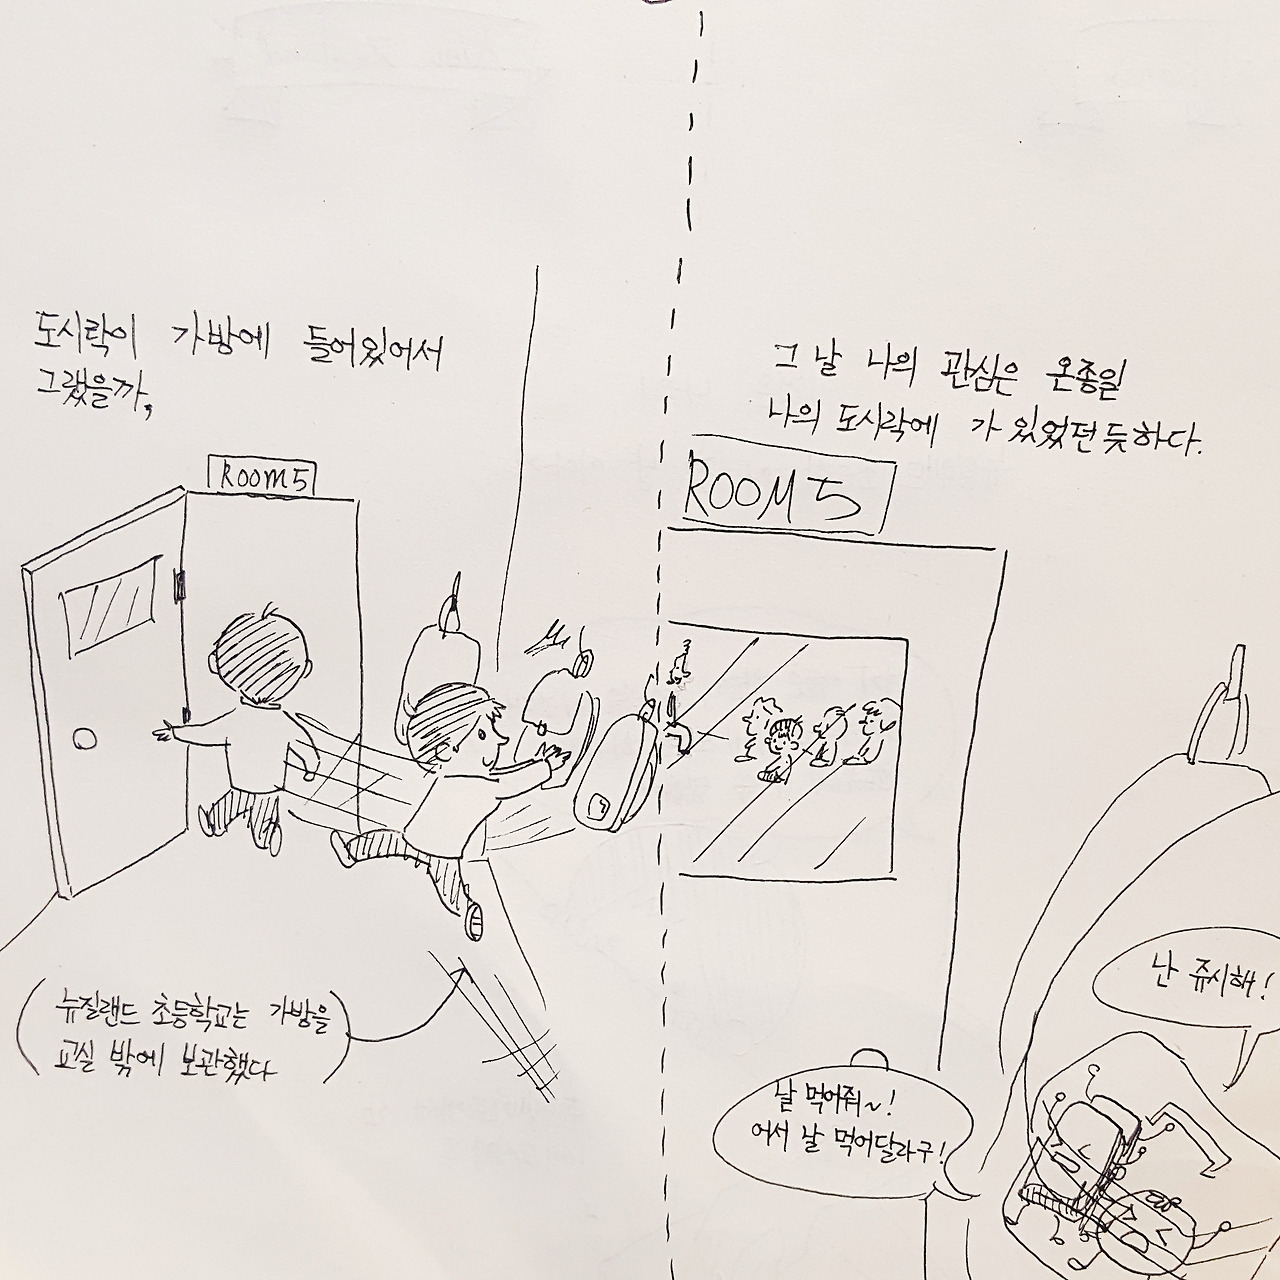 도시락이 가방에 들어있어서
그랬을까,
ROOM 5
(뉴질랜드 초등학교는 가방을
교실 밖에 보관했다)
그 날 나의 관심은 온종일
나의 도시락에 가 있었던 듯하다.
ROOM 5
난 쥬시해!
날 먹어줘~!
어서 날 먹어달라구!